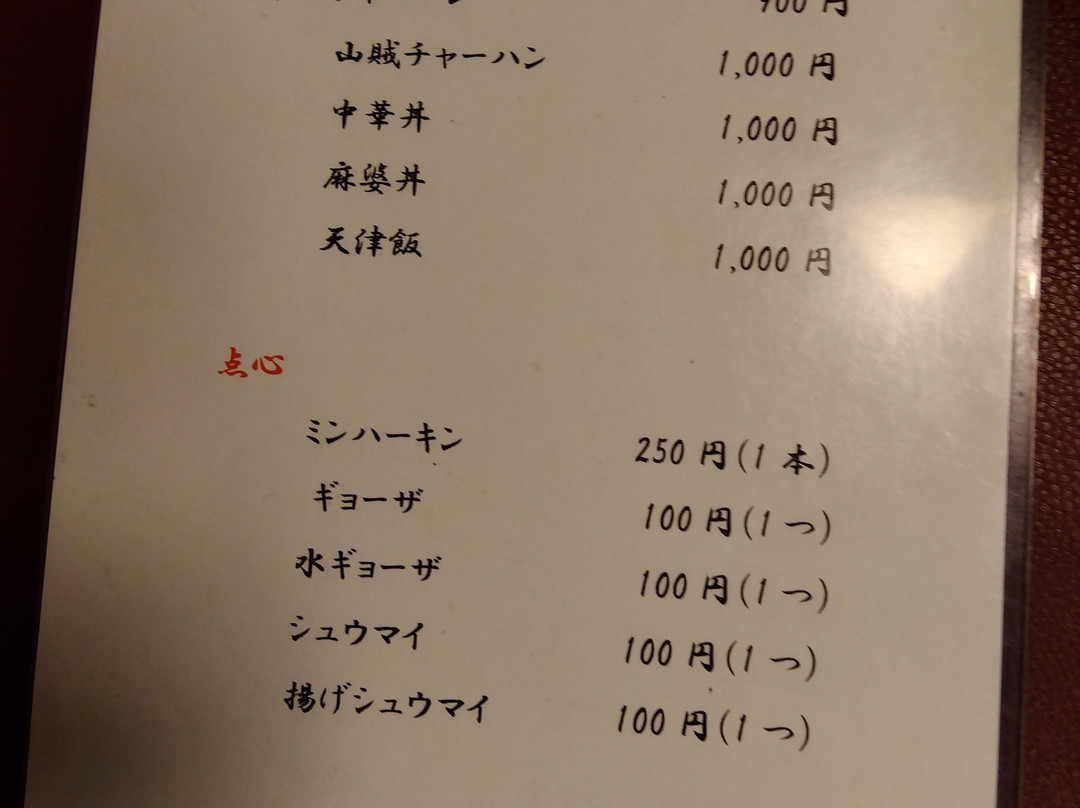 900 円
山賊チャーハン 1,000 円
中華丼 1,000 円
麻婆丼 1,000 円
天津飯 1,000 円
点心
ミンハーキン 250 円(1 本)
ギョーザ 100 円(1 つ)
水ギョーザ 100 円(1 つ)
シュウマイ 100 円(1 つ)
揚げシュウマイ 100 円(1 つ)